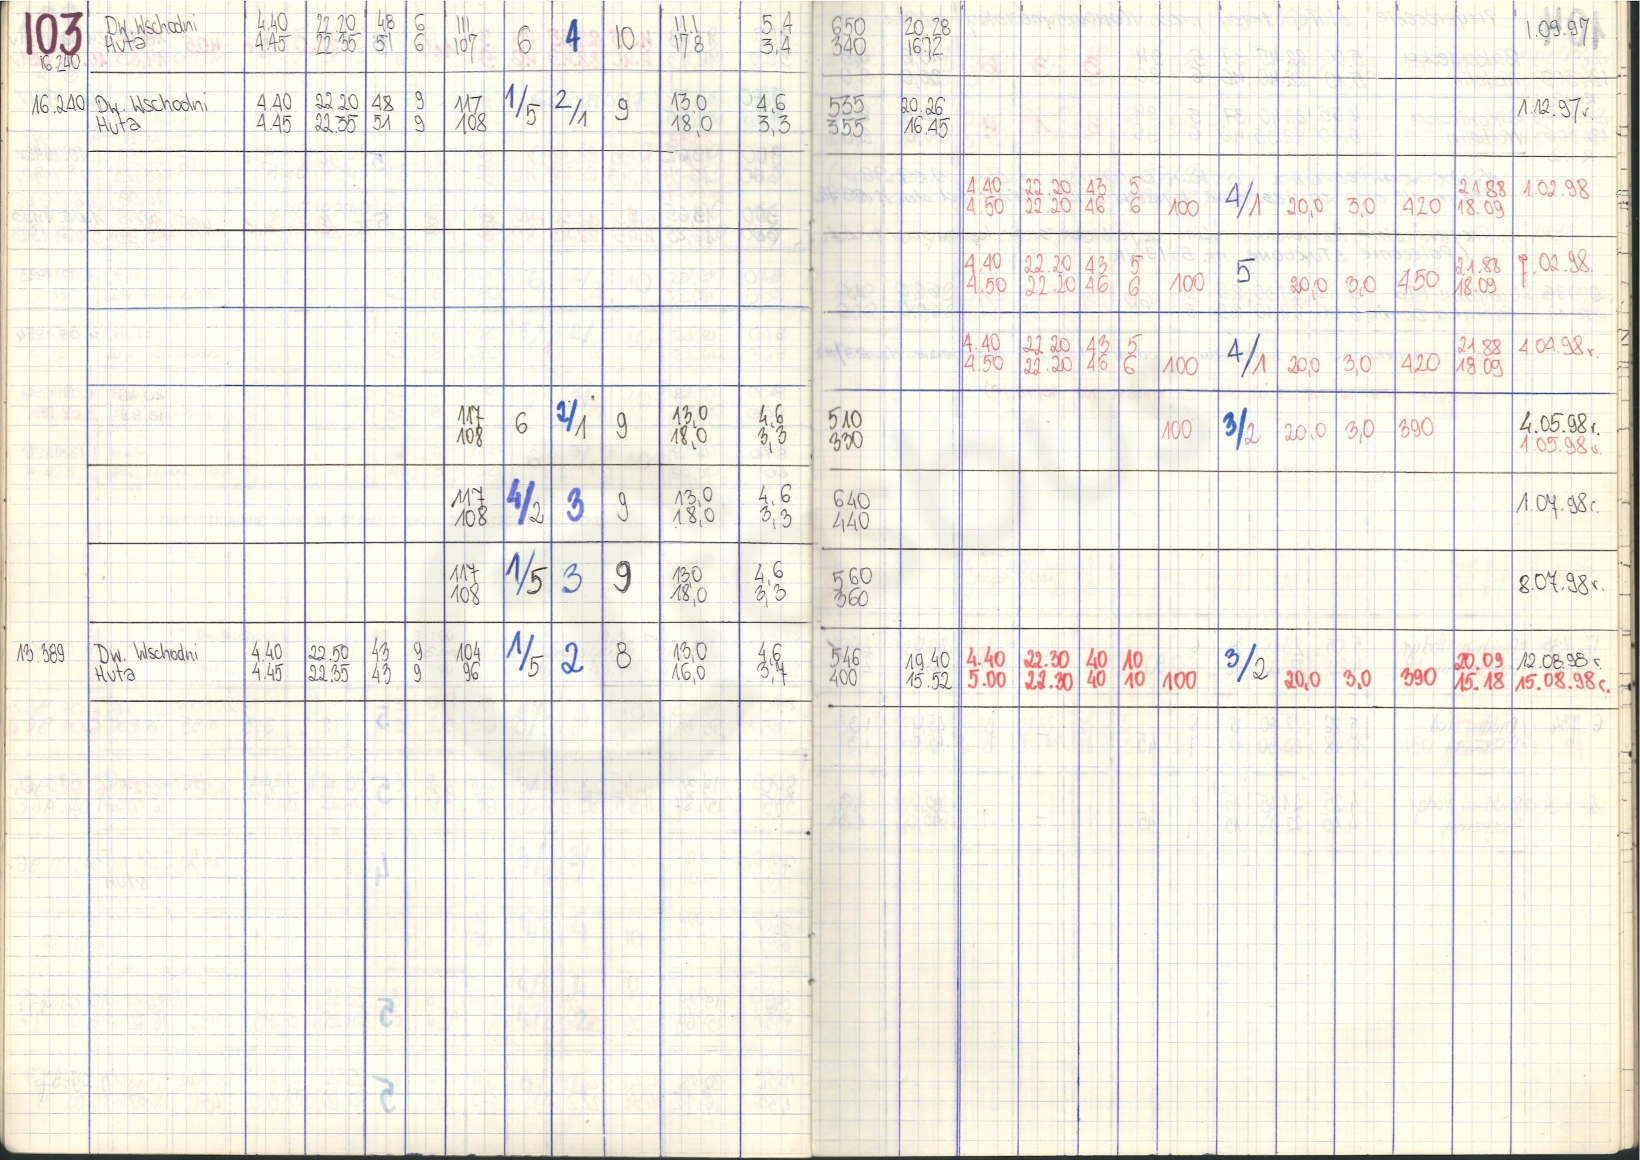 103 Dw. Wschodni 4.40 22.20 48 6 111 6 4 10 11.1 5,4 650 20.28 1.09.97
16.240 Huta 4.45 22.35 51 6 107 17.8 3,4 340 16.12
16.240 Dw. Wschodni 4.40 22.20 48 9 117 1/5 2/1 9 13,0 4,6 535 20.26 1.12.97r.
Huta 4.45 22.35 51 9 108 18,0 3,3 355 16.45
4.40 22.20 43 5 4/1 21.88 1.02.98
4.50 22.20 46 6 100 20,0 3,0 420 18.09
4.40 22.20 43 5 5 21.88 7.02.98.
4.50 22.20 46 6 100 20,0 3,0 450 18.09
4.40 22.20 43 5 4/1 21.88 4.04.98r.
4.50 22.20 46 6 100 20,0 3,0 420 18.09
117 6 2/1 9 13,0 4,6 510 3/2 4.05.98r.
108 18,0 3,3 330 100 20,0 3,0 390 1.05.98r.
117 4/2 3 9 13,0 4,6 640 1.07.98r.
108 18,0 3,3 440
117 1/5 3 9 13,0 4,6 560 8.07.98r.
108 18,0 3,3 360
13.389 Dw. Wschodni 4.40 22.50 43 9 104 1/5 2 8 13,0 4,6 546 19.40 4.40 22.30 40 10 3/2 20.09 12.08.98r.
Huta 4.45 22.35 43 9 96 16,0 3,7 400 15.52 5.00 22.30 40 10 100 20,0 3,0 390 15.18 15.08.98r.